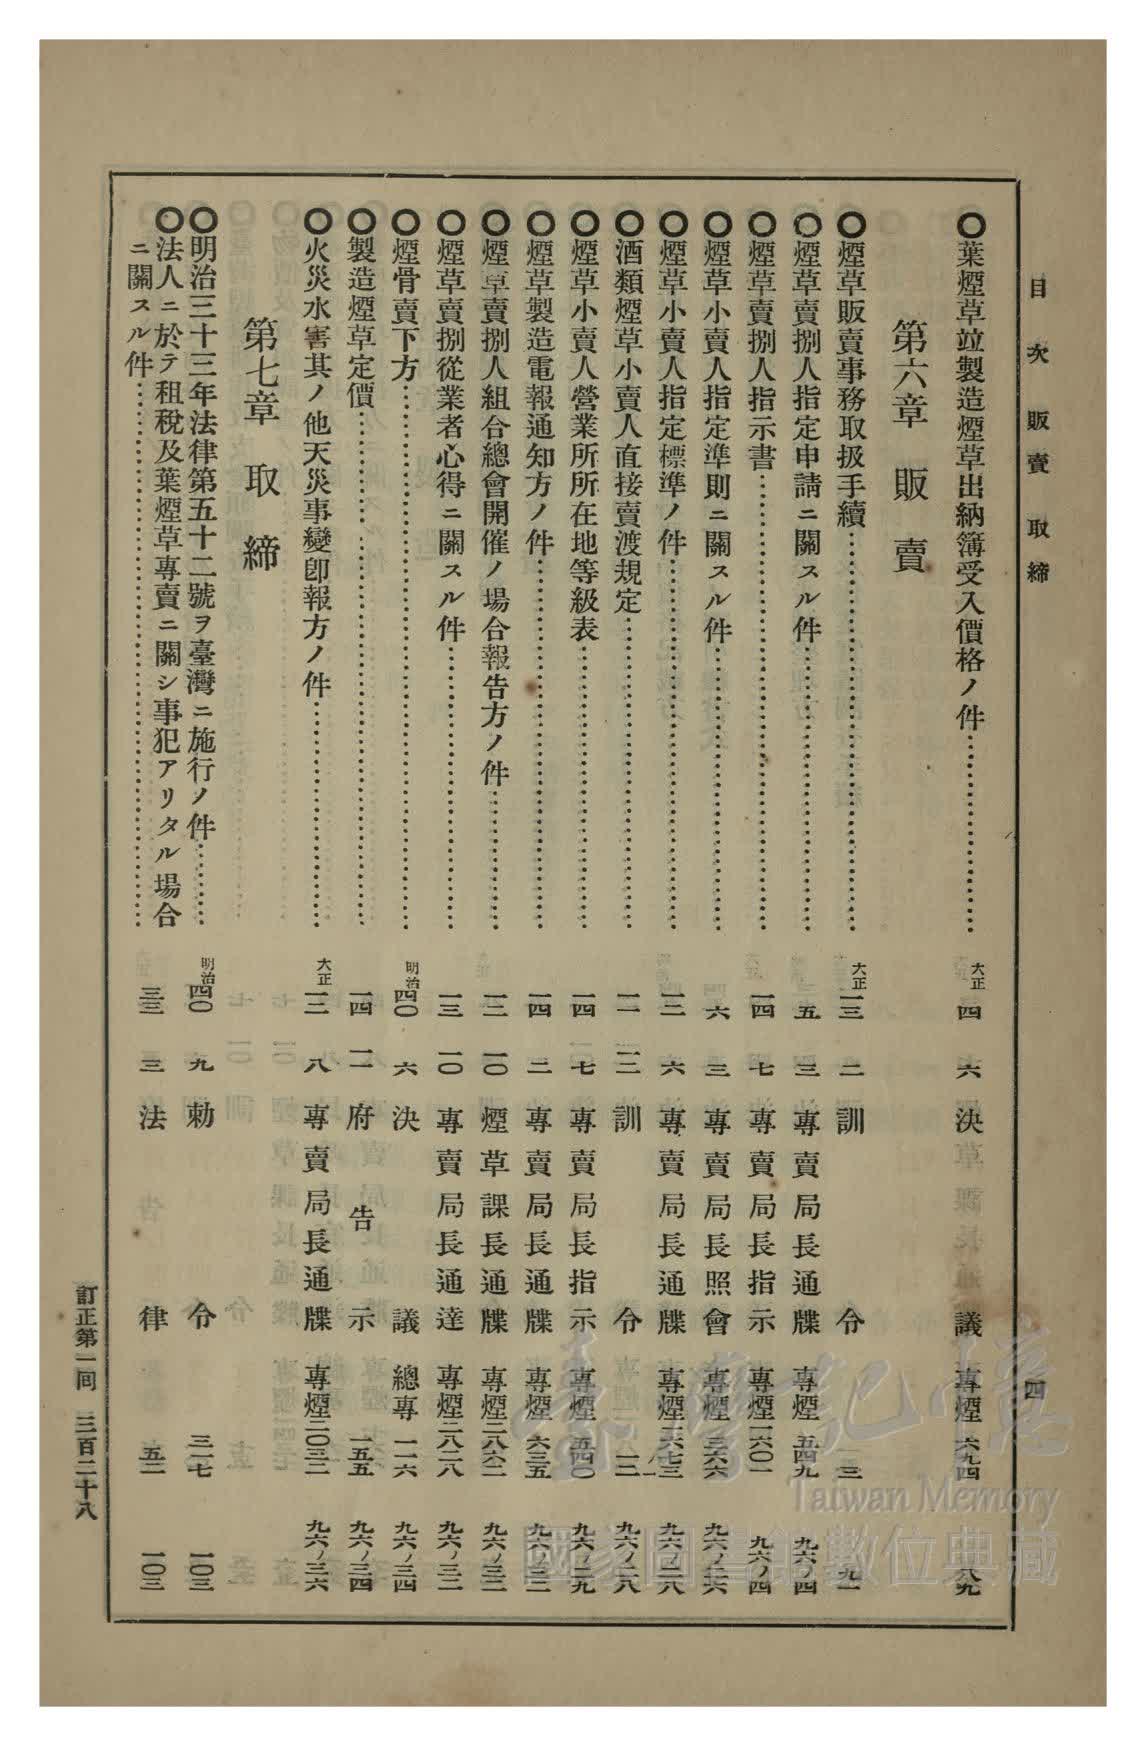 目次 販賣 取締
四
葉煙草竝製造煙草出納簿受入價格ノ件 大正 四 六 決議 專煙 六九四 八九
第六章 販賣
煙草販賣事務取扱手續 大正 一三 二 訓令 三 九一
煙草賣捌人指定申請ニ關スル件 五 三 專賣局長通牒 專煙 五四九 九六ノ四
煙草賣捌人指示書 一四 七 專賣局長指示 專煙 一六〇一 九六ノ四
煙草小賣人指定準則ニ關スル件 六 三 專賣局長照會 專煙 三六六 九六ノ二六
煙草小賣人指定標準ノ件 一二 六 專賣局長通牒 專煙 六七三 九六ノ二八
酒類煙草小賣人直接賣渡規定 一一 一二 訓令 一二一 九六ノ二八
煙草小賣人營業所所在地等級表 一四 七 專賣局長指示 專煙 五四〇 九六ノ二九
煙草製造電報通知方ノ件 一四 二 專賣局長通牒 專煙 六三五 九六ノ三二
煙草賣捌人組合總會開催ノ場合報告方ノ件 一二 一〇 煙草課長通牒 專煙 二八六二 九六ノ三二
煙草賣捌從業者心得ニ關スル件 一三 一〇 專賣局長通達 專煙 二八二八 九六ノ三二
煙骨賣下方 明治 四〇 六 決議 總專 一一六 九六ノ三四
製造煙草定價 一四 一一 府告示 一五五 九六ノ三四
火災水害其ノ他天災事變卽報方ノ件 大正 一二 八 專賣局長通牒 專煙 二〇三二 九六ノ三六
第七章 取締
明治三十三年法律第五十二號ヲ臺灣ニ施行ノ件 明治 四〇 九 勅令 三一七 一〇三
法人ニ於テ租稅及葉煙草專賣ニ關シ事犯アリタル場合
ニ關スル件 三三 三 法律 五二 一〇三
訂正第一回 三百二十八
臺灣記憶
Taiwan Memory
國家圖書館數位典藏